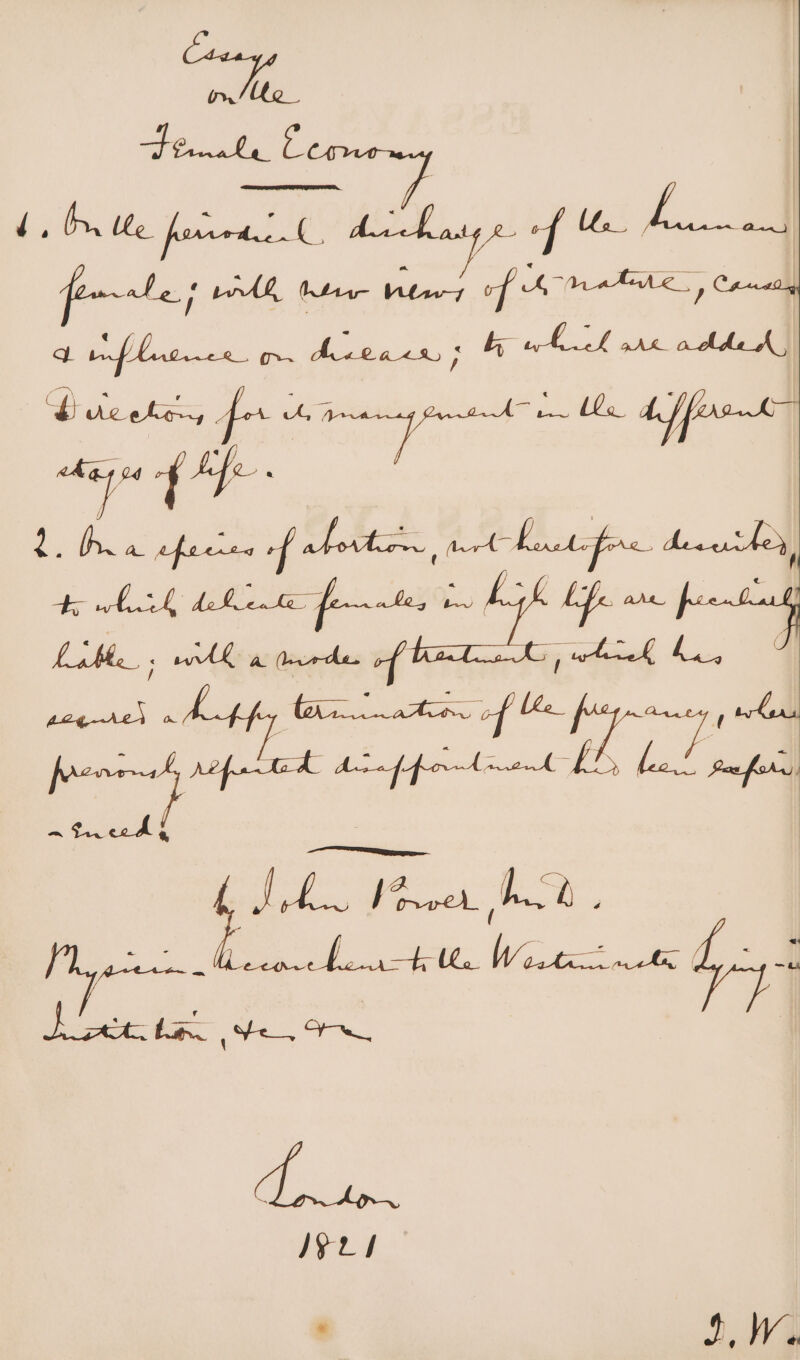 Essays
on the
Female Economy
1. On the periodical discharge of the human
female; with new views of its nature, causes
& influence on disease; to which are added
Directions for its management in the different
stages of life.
2. On a species of abortion, not heretofore described,
to which delicate females in high life are peculiarly
liable; with a mode of treatment, which has
secured a happy termination of the pregnancy, where
previously repeated disappointment has been experi
-enced;
by John Power, M.D.
Physician-Accoucheur to the Westminster Lying-in
Institution, &c. &c.
London
1821
J. W.